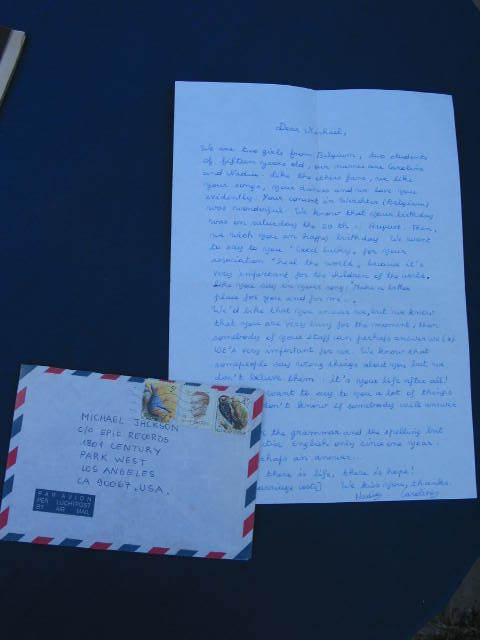 Dear Michael,
We are two girls from Belgium, two students
of fifteen years old, our names are Caroline
and Nadia. Like the others fans, we like
your songs, your dances and we love you
evidently. Your concert in Werchter (Belgium)
was wonderful. We know that your birthday
was on saturday the 29 th of August. Then,
we wish you an happy birthday. We want
to say to you "Good Lucky" for your
association "Heal the world", because it's
very important for the children of the world.
Like you say in your song: "Make a better
place for you and for me...
We'd like that you answer us, but we know
that you are very busy for the moment, then
somebody of your staff can perhaps answer us
It's very important for us. We know that
some people say wrong things about you but we
don't believe them: it's your life after all!
want to say to you a lot of things
don't know if somebody will answer
the grammar and the spelling but
english only since one year.
perhaps an answer..
there is life, there is hope!
We kiss you, thanks.
Nadia Caroline
MICHAEL JACKSON
C/O EPIC RECORDS
1801 CENTURY
PARK WEST
LOS ANGELES
CA 90067, USA.
PAR AVION
PER LUCHTPOST
BY AIR MAIL